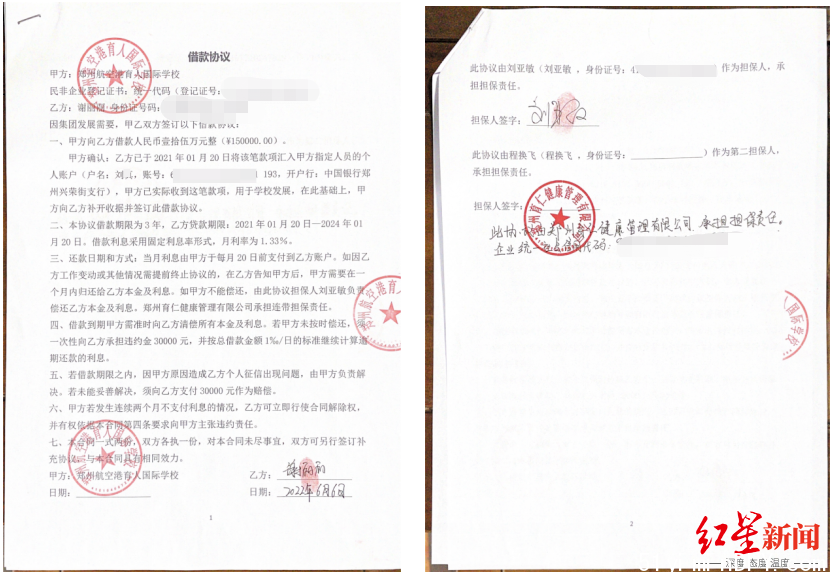 借款协议
甲方：郑州航空港育人国际学校
民非企业登记证书：统一代码（登记证号：
乙方：谢 身份证号码：
因集团发展需要，甲乙双方签订以下借款协议：
一、甲方向乙方借款人民币壹拾伍万元整（¥150000.00）。
甲方确认：乙方已于 2021 年 01 月 20 日将该笔款项汇入甲方指定人员的个
人账户（户名：刘真，账号：6 193，开户行：中国银行郑
州兴荣街支行），甲方已实际收到这笔款项，用于学校发展，在此基础上，甲
方向乙方补开收据并签订此借款协议。
二、本协议借款期限为 3 年，乙方贷款期限：2021 年 01 月 20 日—2024 年 01
月 20 日。借款利息采用固定利息率形式，月利率为 1.33%。
三、还款日期和方式：当月利息由甲方于每月 20 日前支付到乙方账户。如因乙
方工作变动或其他情况需提前终止协议的，在乙方告知甲方后，甲方需要在一
个月内归还给乙方本金及利息。如甲方不能偿还，由此协议担保人刘亚敏负责
偿还乙方本金及利息。郑州育仁健康管理有限公司承担连带担保责任。
四、借款到期甲方需准时向乙方清偿所有本金及利息。若甲方未按时偿还，须
一次性向乙方承担违约金 30000 元，并按总借款金额 1‰/日的标准继续计算逾
期还款的利息。
五、若借款期限之内，因甲方原因造成乙方个人征信出现问题，由甲方负责解
决。若未能妥善解决，须向乙方支付 30000 元作为赔偿。
六、甲方若发生连续两个月不支付利息的情况，乙方可立即行使合同解除权，
并有权依据本合同第四条要求向甲方主张违约责任。
七、本合同一式两份，双方各执一份，对本合同未尽事宜，双方可另行签订补
充协议，与本合同具有相同效力。
甲方：郑州航空港育人国际学校 乙方：
日期： 日期：2022年6月6日
1
郑州航空港育人国际学校
此协议由刘亚敏（刘亚敏，身份证号：4 作为担保人，承
担担保责任。
担保人签字：
此协议由程换飞（程换飞，身份证号： ）作为第二担保人，
承担担保责任。
担保人签字：
郑州育仁健康管理有限公司
此协议由郑州育仁健康管理有限公司承担担保责任。
企业统一社会信用代码：9
国际学校
2
红星新闻
深度 态度 温度